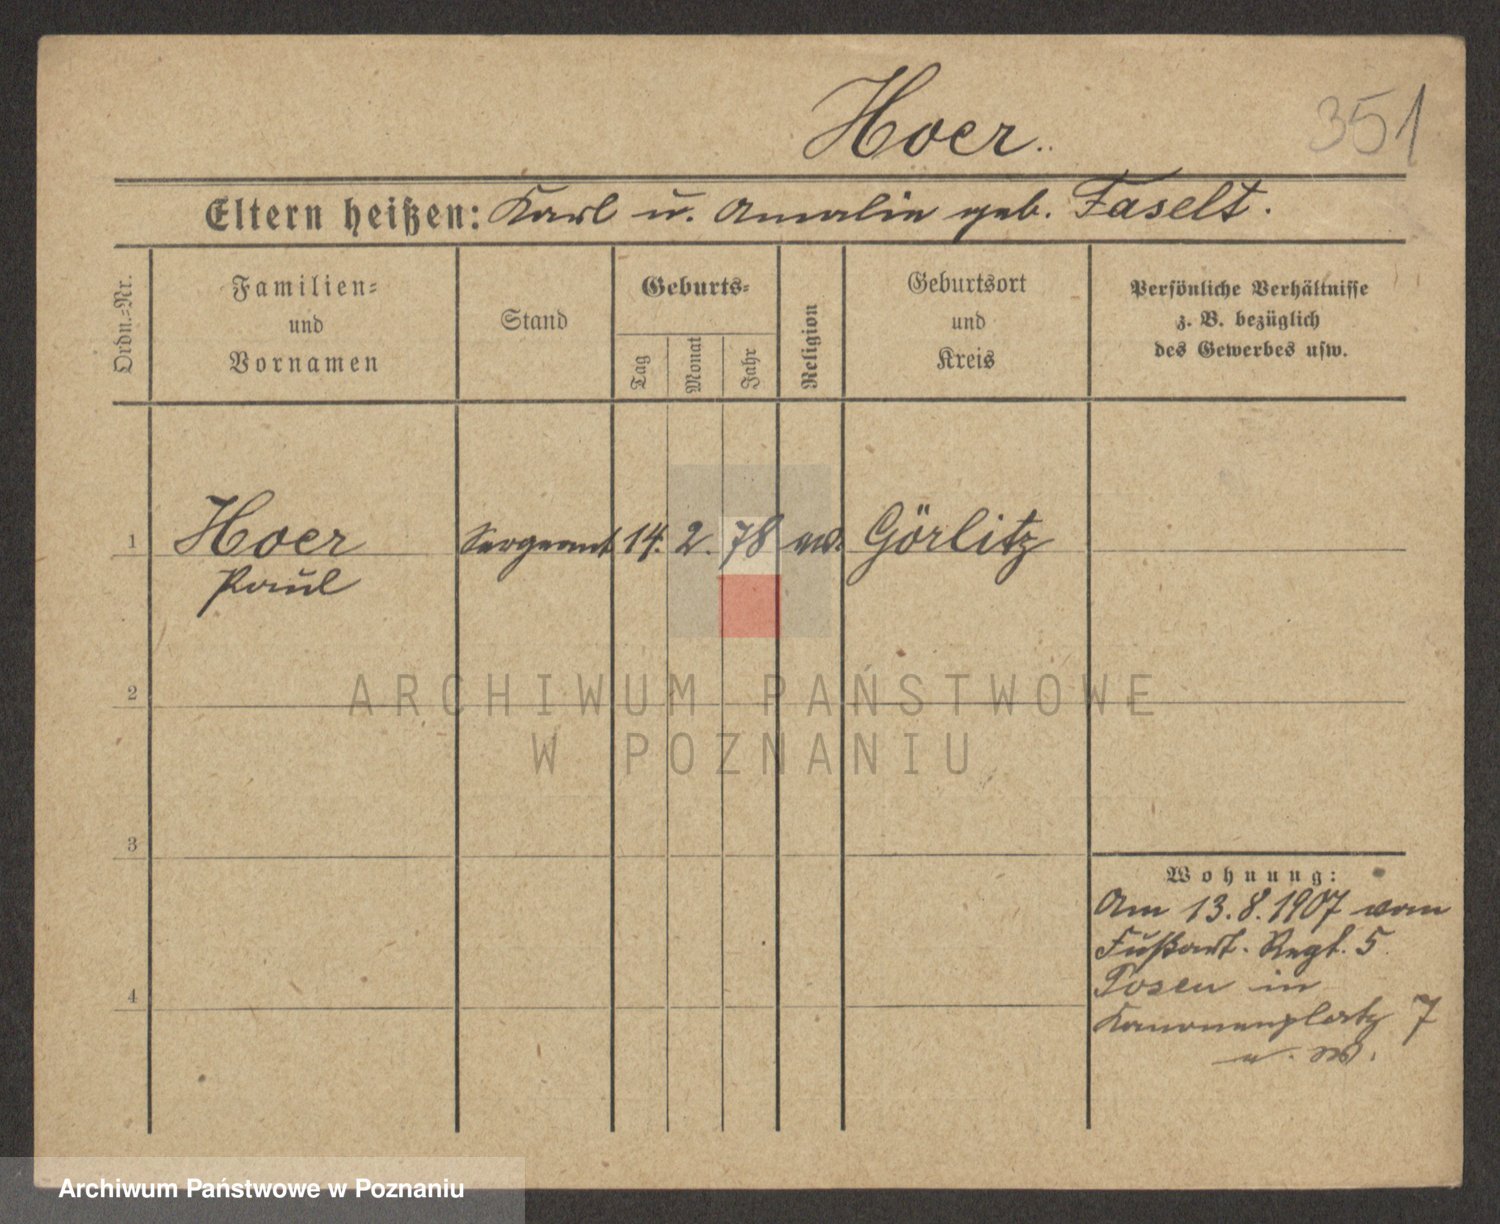 Hoer.
351
Eltern heißen: Karl u. Amalie geb. Faselt.
Ordn.=Nr.
Familien=
und
Vornamen
Stand
Geburts=
Tag
Monat
Jahr
Religion
Geburtsort
und
Kreis
Persönliche Verhältnisse
z. B. bezüglich
des Gewerbes usw.
1 Hoer Sergeant 14. 2. 78 ev. Görlitz
Paul
2
ARCHIWUM PAŃSTWOWE
W POZNANIU
3
4
Wohnung:
Am 13.8.1907 vom
Fußart. Regt. 5
Posen in
Kanonenplatz 7
Archiwum Państwowe w Poznaniu